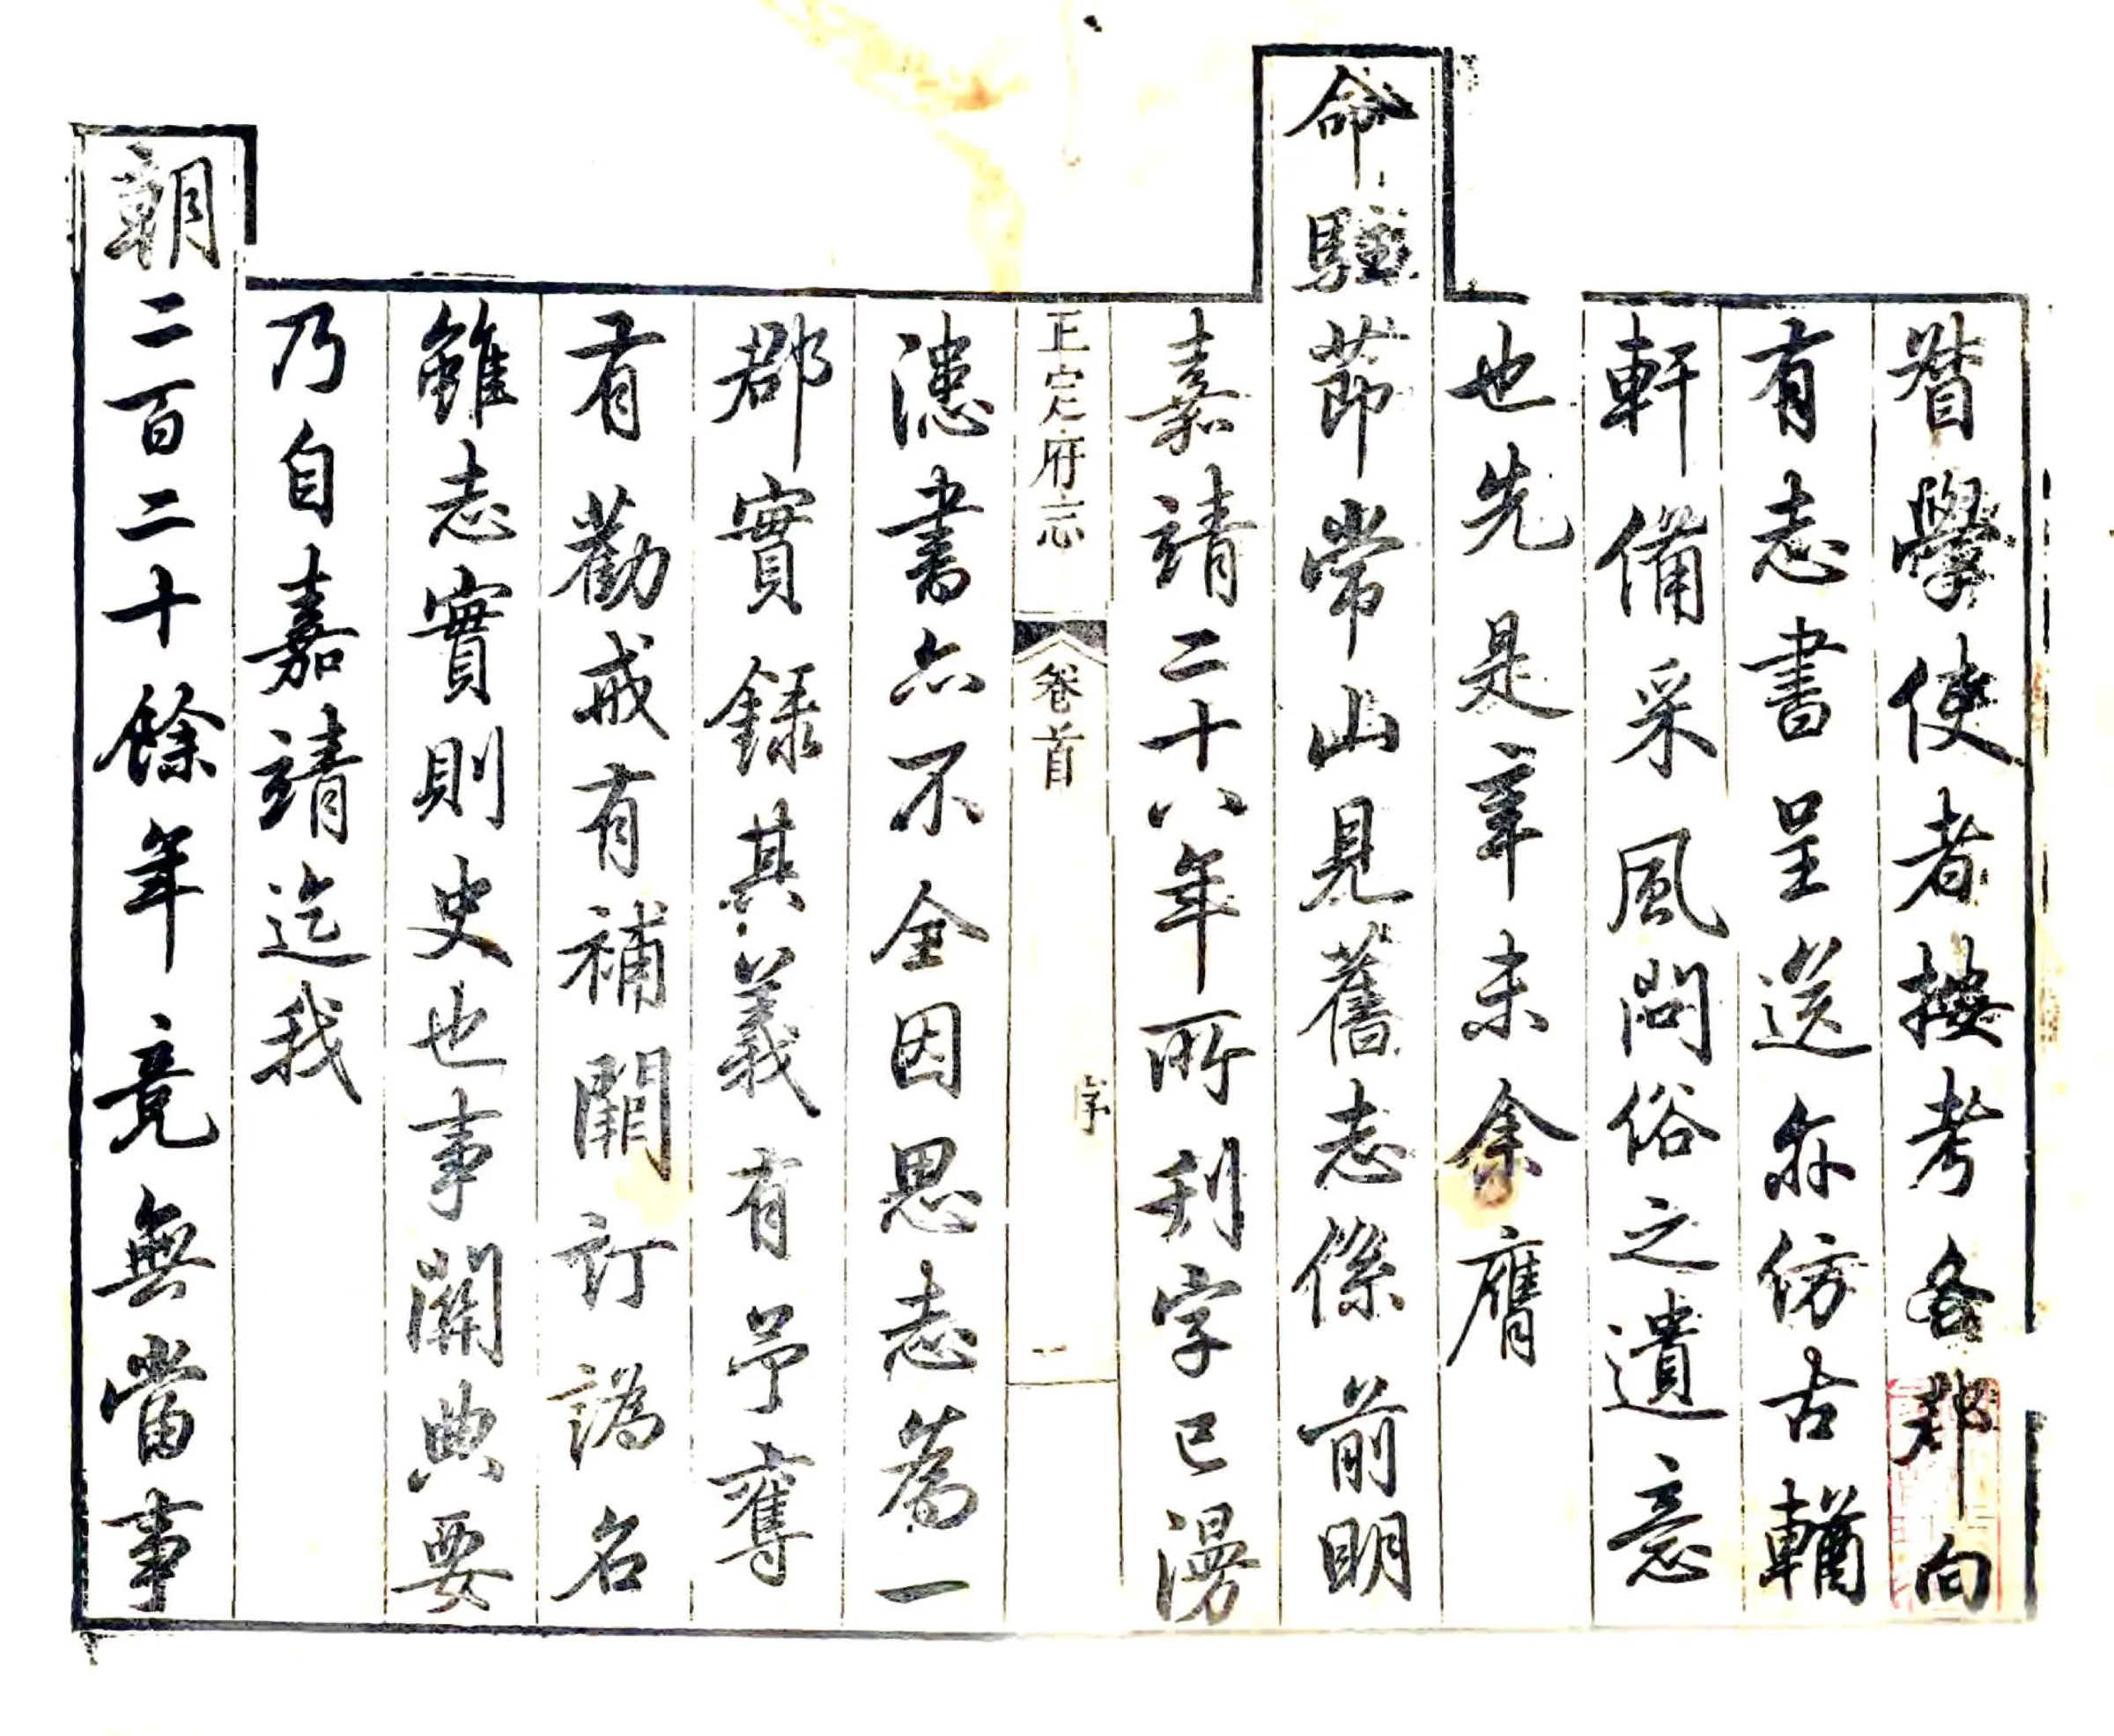 督學使者按考各郡向
有志書呈送亦仿古輶
軒備采風問俗之遺意
也先是辛未余膺
命駐節常山見舊志係前明
嘉靖二十八年所刊字已漫
漶書亦不全因思志爲一
郡實録其義有予奪
有勸戒有補闕訂譌名
雖志實則史也事關典要
乃自嘉靖迄我
朝二百二十餘年竟無當事
正定府志
卷首
序
二